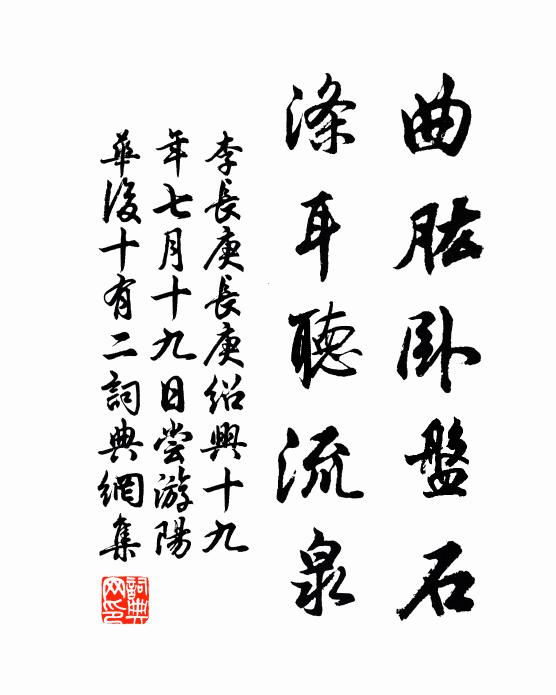 曲肱卧盤石
滌耳聽流泉
李長庚長庚紹興十九
年七月十九日尝游陽
華後十有二詞典網集
詞典
网印